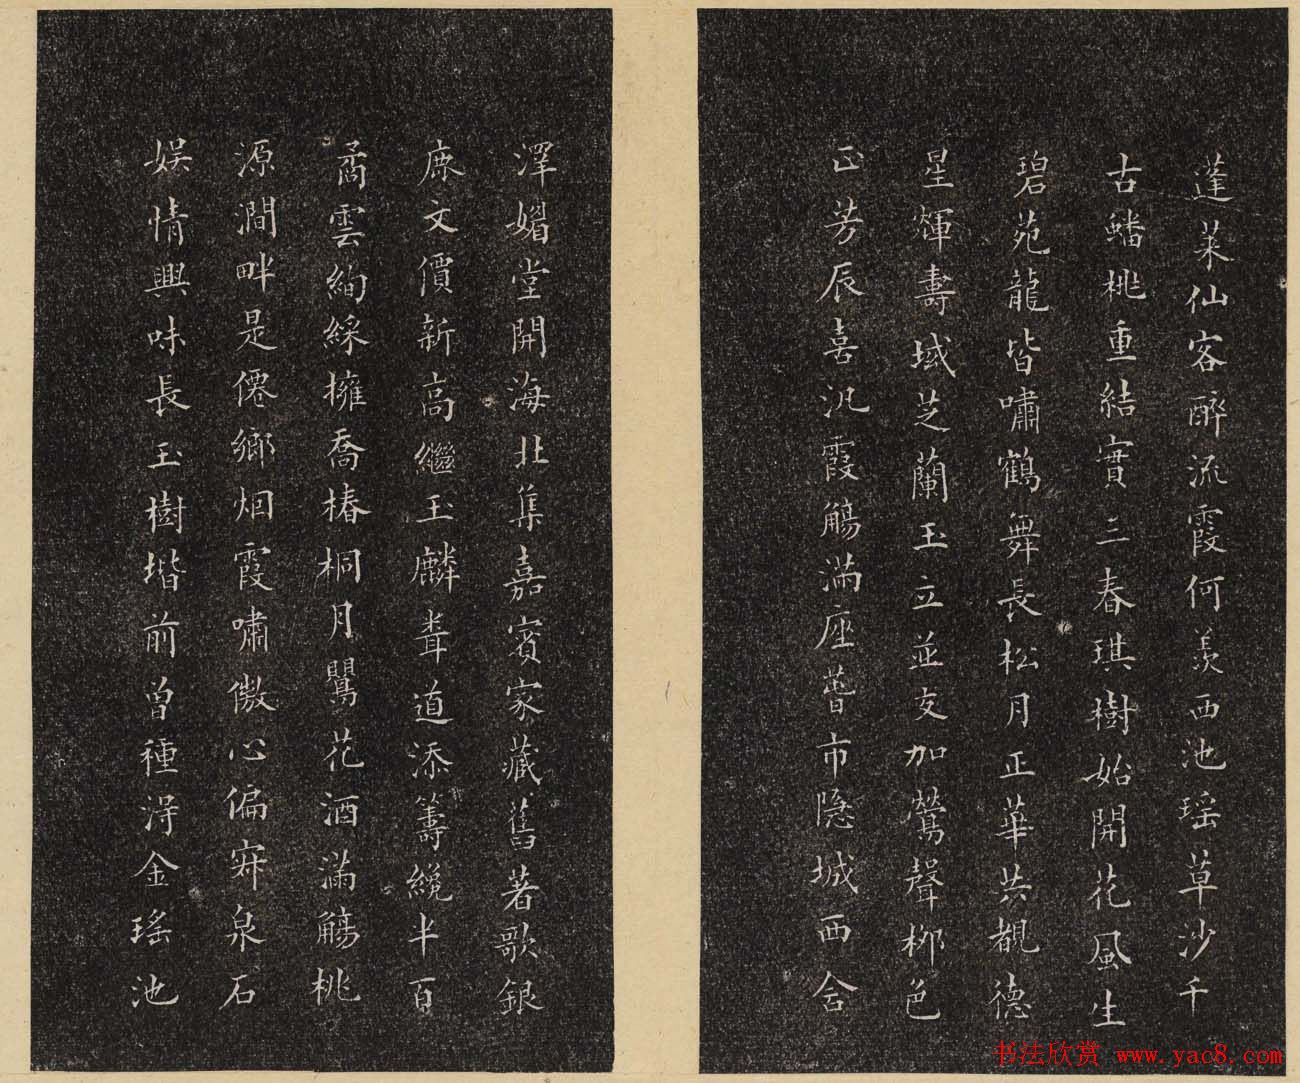 蓬萊仙客醉流霞何羨西池瑶草沙千
古蟠桃重結實三春琪樹始開花風生
碧苑龍皆嘯鶴舞長松月正華共覩德
星輝壽域芝蘭玉立並交加鶯聲柳色
正芳辰喜汎霞觴滿座薈市隱城西舍
澤媚堂開海北集嘉賓家藏舊著歌銀
鹿文價新高繼玉麟耋道添籌纔半百
矞雲絢綵擁喬椿桐月鶯花酒滿觴桃
源澗畔是僊鄉烟霞嘯傲心偏寂泉石
娛情興味長玉樹堦前曾種得金瑤池
书法欣赏 www.yac8.com